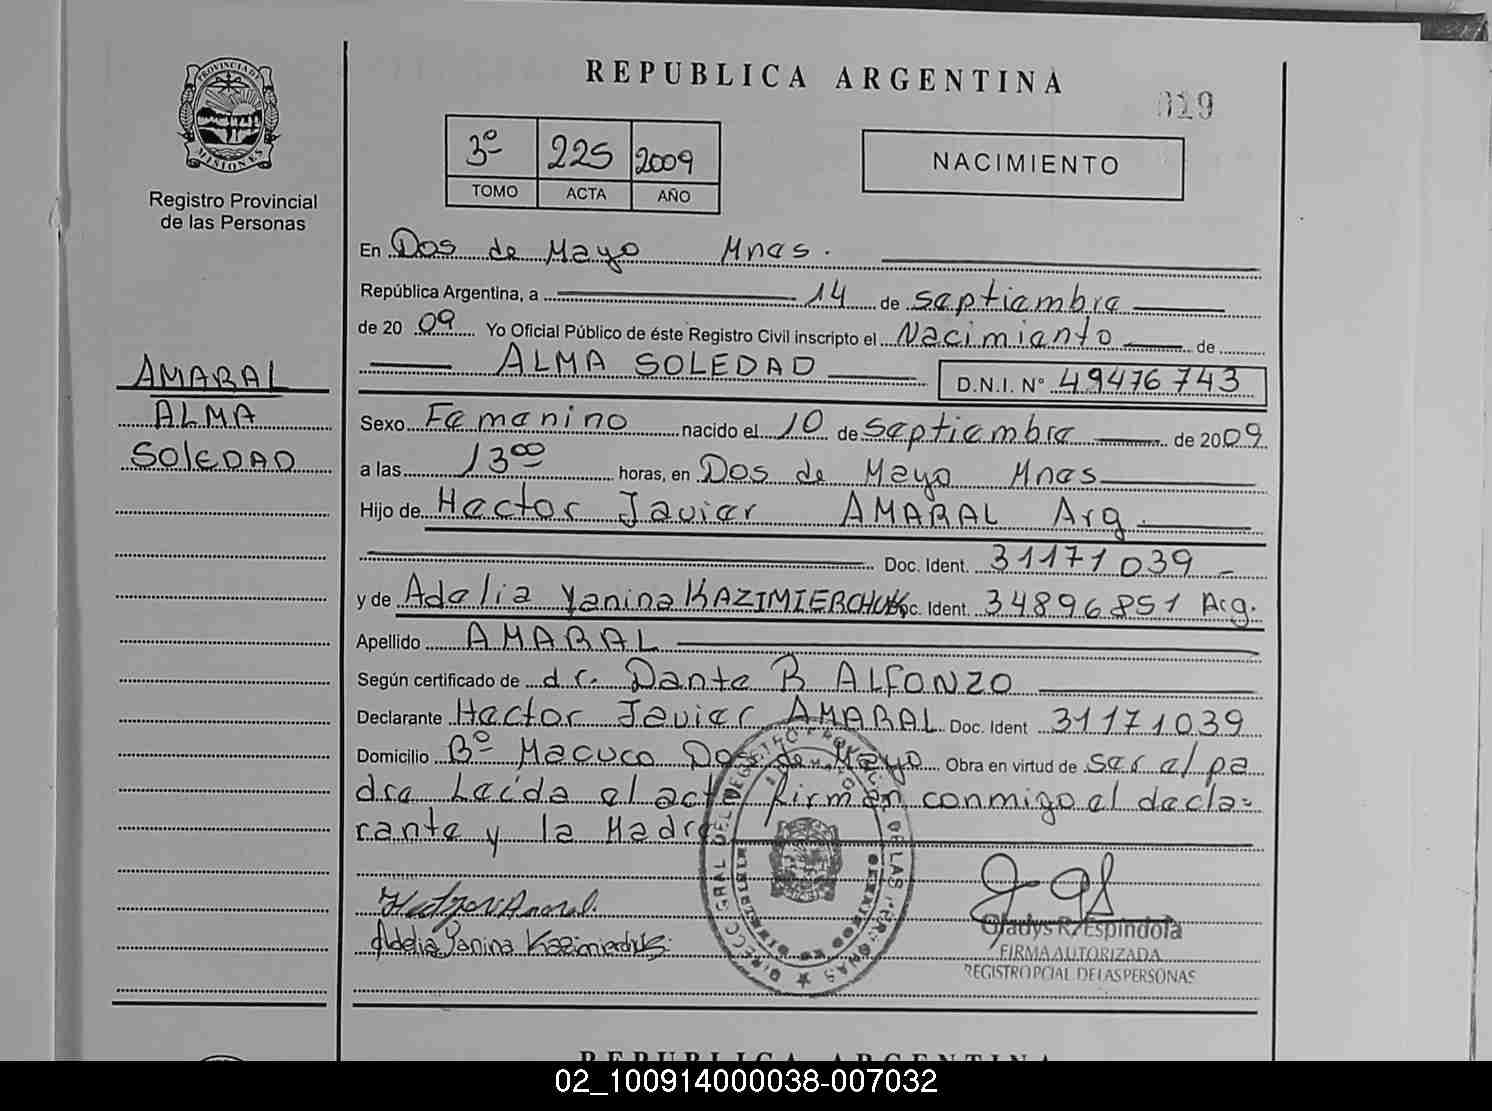 REPUBLICA ARGENTINA
019
PROVINCIA DE
MISIONES
Registro Provincial
de las Personas
3º 225 2009
TOMO ACTA AÑO
NACIMIENTO
En Dos de Mayo Mnes.
República Argentina, a 14 de septiembre
de 2009 Yo Oficial Público de éste Registro Civil inscripto el Nacimiento de
ALMA SOLEDAD D.N.I. N° 49476743
AMARAL
ALMA
SOlEDAD
Sexo Femenino nacido el 10 de septiembre de 2009
a las 13⁰⁰ horas, en Dos de Mayo Mnes
Hijo de Hector Javier AMARAL Arg.
Doc. Ident. 31171039
y de Adelia Yanina KAZIMIERCHUK Doc. Ident. 34896851 Arg.
Apellido AMARAL
Según certificado de dr. Dante B ALFONZO
Declarante Hector Javier AMARAL Doc. Ident 31171039
Domicilio Bº Macuco Dos de Mayo Obra en virtud de ser el pa
dre Leída el acta firman conmigo el decla=
rante y la Madre
Adelia Yanina Kazimierchuk
Gladys R. Espindola
FIRMA AUTORIZADA
REGISTRO PCIAL. DE LAS PERSONAS
REPUBLICA ARGENTINA
02_100914000038-007032